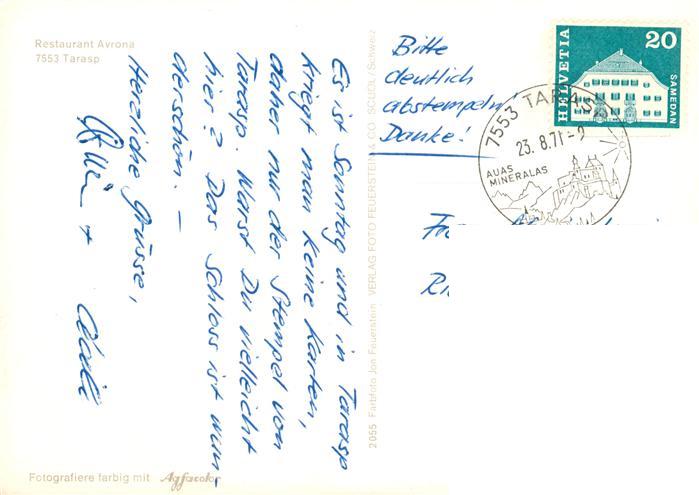 Restaurant Avrona
7553 Tarasp
Es ist Sonntag und in Tarasp
kriegt man keine Karten,
daher nur der Stempel von
Tarasp. Warst Du vielleicht
hier? Das Schloss ist wun-
derschön. —
Herzliche Grüsse,
Fotografiere farbig mit Agfacolor
2055 Farbfoto Jon Feuerstein VERLAG FOTO FEUERSTEIN & CO. SCUOL/Schweiz
Bitte
deutlich
abstempeln!
Danke!
HELVETIA
20
SAMEDAN
7553 TARASP
23.8.71-9
AUAS
MINERALAS